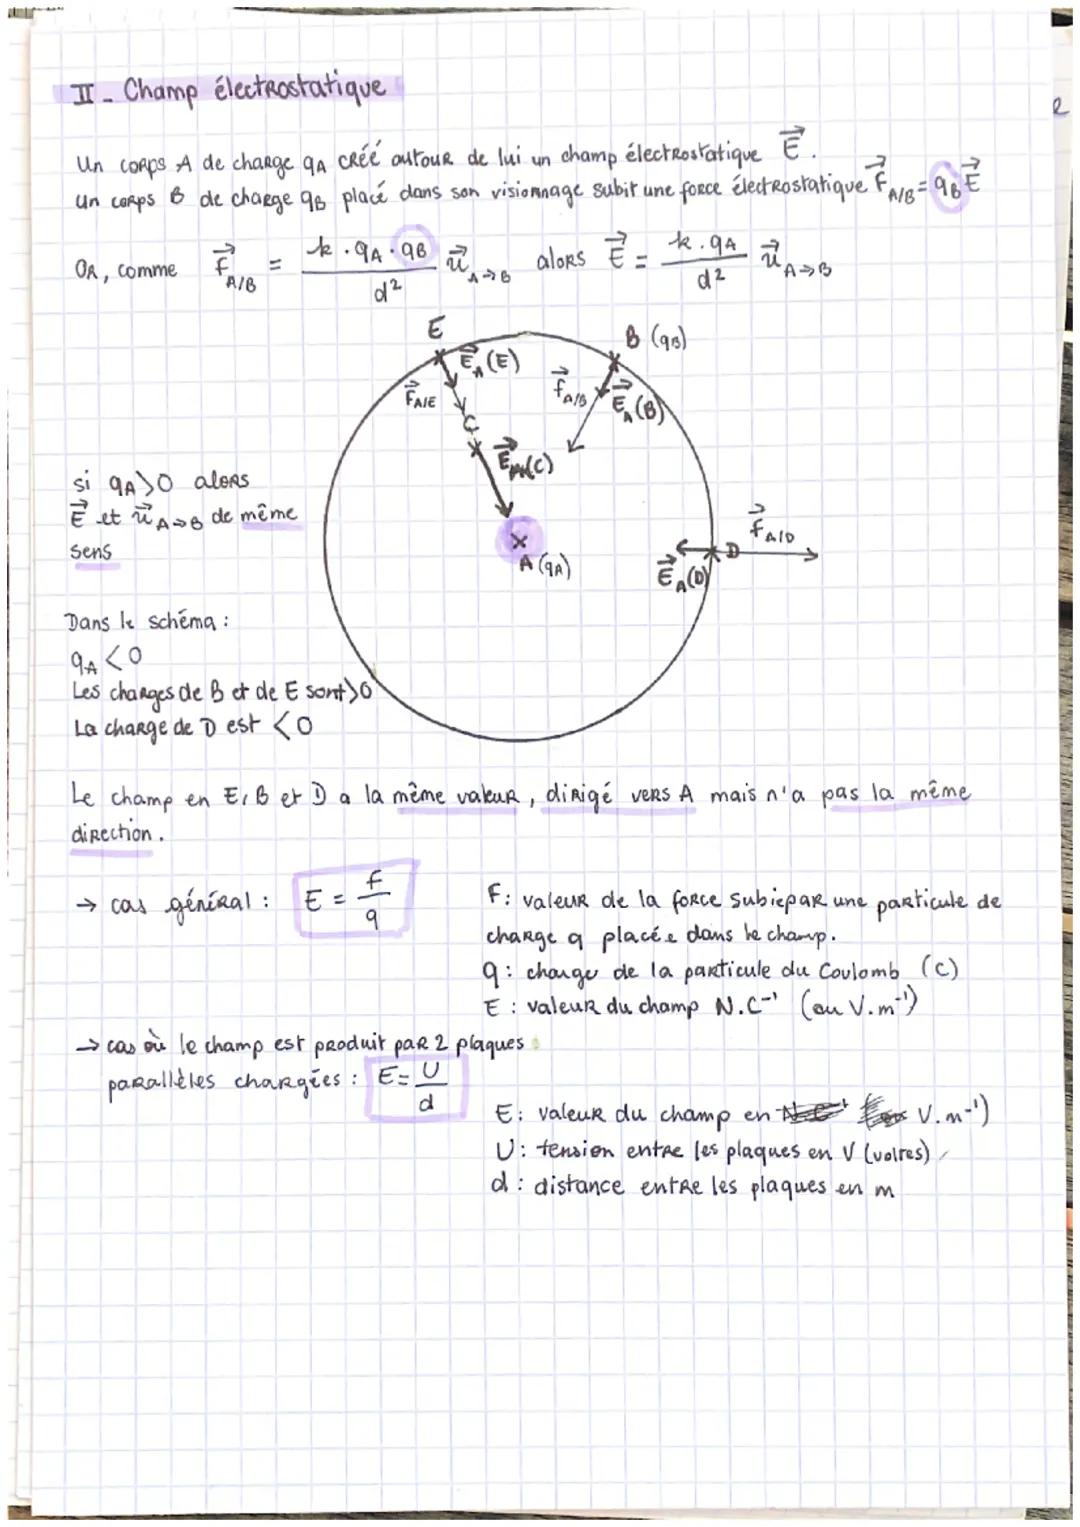 II - Champ électrostatique
Un corps A de charge qA créé autour de lui un champ électrostatique E⃗.
Un corps B de charge qB placé dans son visionnage subit une force électrostatique F⃗A/B = qB E⃗
Or, comme F⃗A/B = k·qA·qB / d² u⃗A→B alors E⃗ = k·qA / d² u⃗A→B
E
B (qB)
E⃗A(E)
F⃗A/E
f⃗A/B
E⃗A(B)
C
E⃗A(C)
si qA>0 alors
E⃗ et u⃗A→B de même
sens
A (qA)
D
f⃗A/D
E⃗A(D)
Dans le schéma :
qA<0
Les charges de B et de E sont >0
La charge de D est <0
Le champ en E, B et D a la même valeur, dirigé vers A mais n'a pas la même
direction.
→ cas général : E = f/q
F : valeur de la force subie par une particule de
charge q placée dans le champ.
q : charge de la particule du Coulomb (C)
E : valeur du champ N.C⁻¹ (ou V.m⁻¹)
→ cas où le champ est produit par 2 plaques
parallèles chargées : E = U/d
E : valeur du champ en V.m⁻¹)
U : tension entre les plaques en V (voltes)
d : distance entre les plaques en m